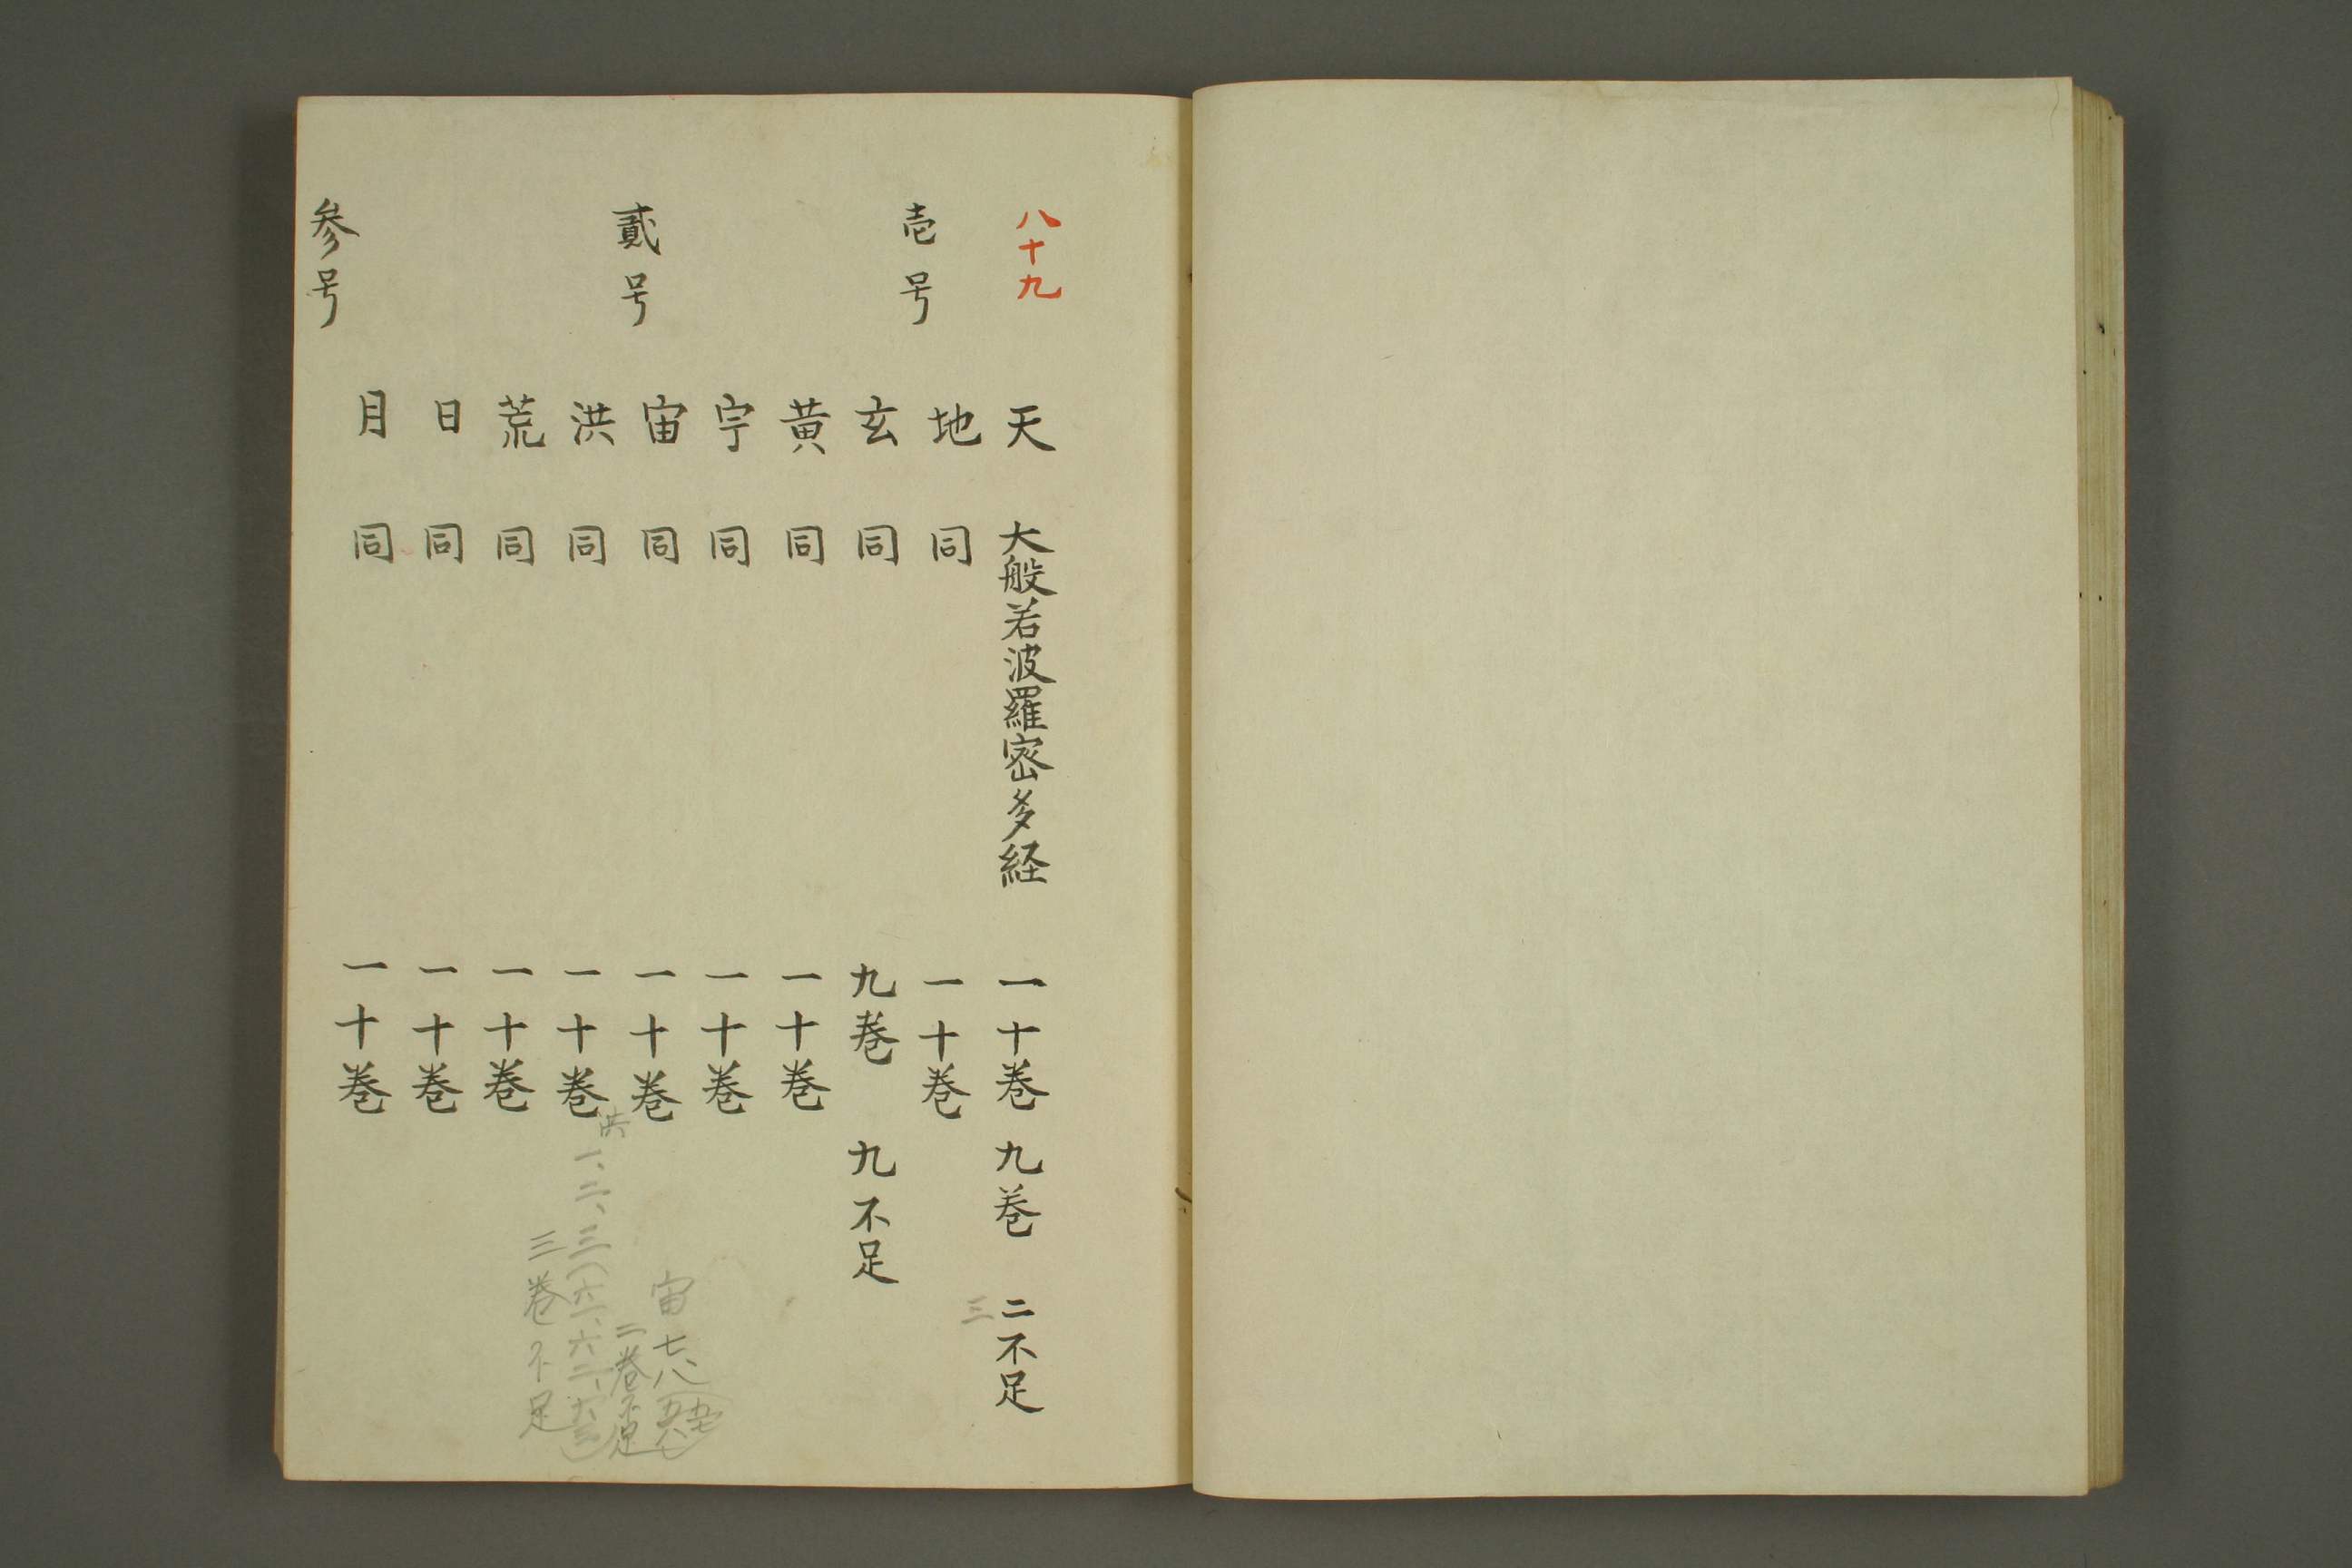 八十九
天 大般若波羅密多経 一十巻 九巻 二不足
三
壱号
地 同 一十巻
玄 同 九巻 九不足
黄 同 一十巻
宇 同 一十巻
宙 同 一十巻
宙 七、八
二巻不足
貳号
洪 同 一十巻
洪 一、二、三(六一、六二、六三)
三巻不足
荒 同 一十巻
日 同 一十巻
月 同 一十巻
参号